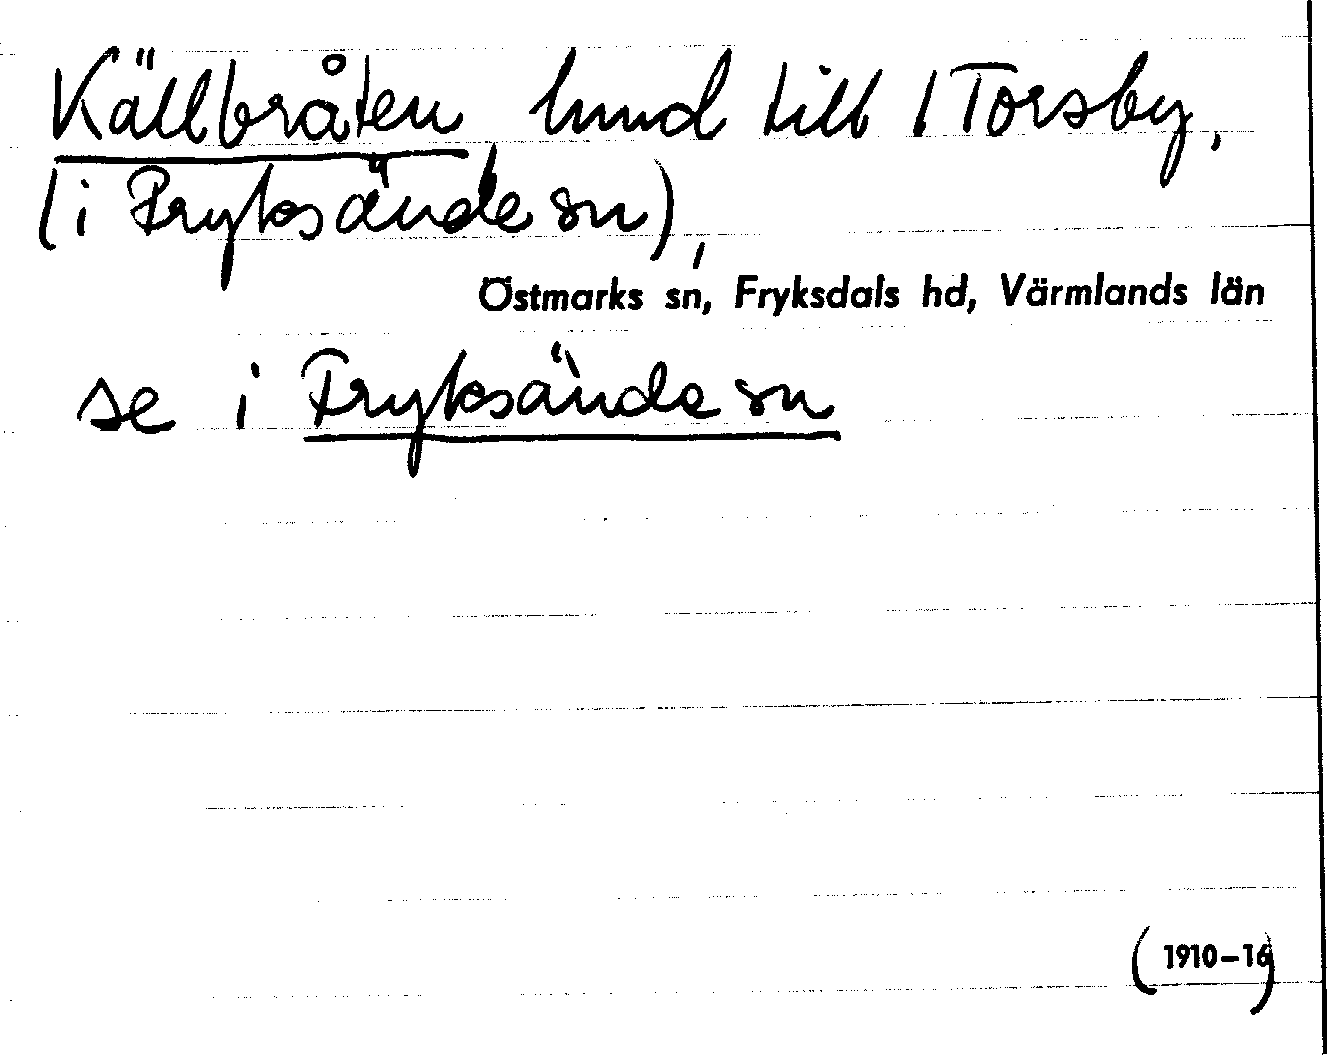 Källbråten hmd till 1 Torsby,
(i Fryksände sn),
Östmarks sn, Fryksdals hd, Värmlands län
se i Fryksände sn
(1910–16)